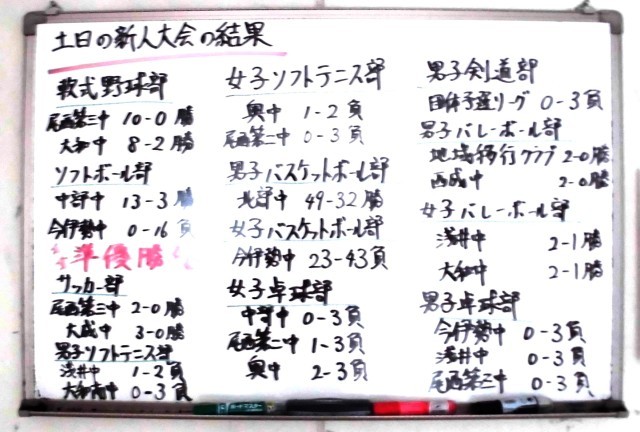 土日の新人大会の結果
軟式野球部
尾西第三中 10-0 勝
大和中 8-2 勝
ソフトボール部
中部中 13-3 勝
今伊勢中 0-16 負
準優勝
サッカー部
尾西第三中 2-0勝
大成中 3-0勝
男子ソフトテニス部
浅井中 1-2負
大和南中 0-3負
女子ソフトテニス部
奥中 1-2負
尾西第二中 0-3負
男子バスケットボール部
北部中 49-32勝
女子バスケットボール部
今伊勢中 23-43負
女子卓球部
中部中 0-3負
尾西第二中 1-3負
奥中 2-3負
男子剣道部
団体予選リーグ 0-3負
男子バレーボール部
地域移行クラブ 2-0勝
西成中 2-0勝
女子バレーボール部
浅井中 2-1勝
大和中 2-1勝
男子卓球部
今伊勢中 0-3負
浅井中 0-3負
尾西第三中 0-3負